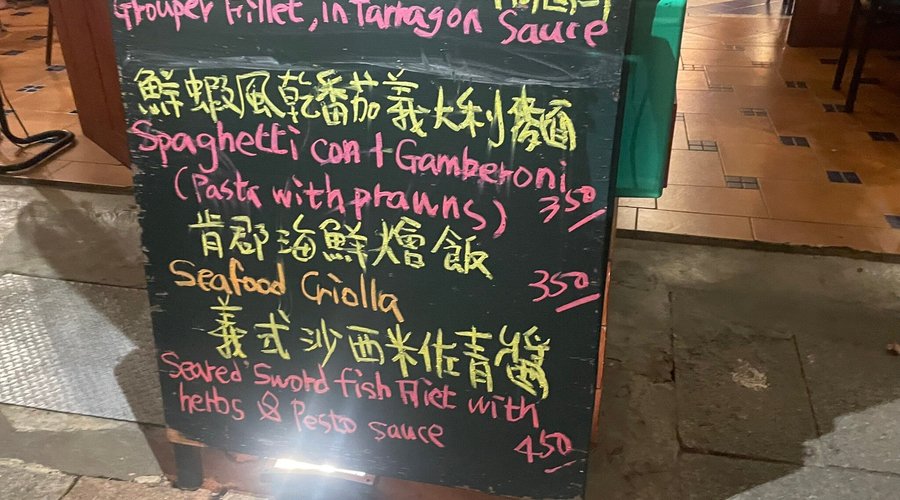 Grouper Fillet, in Tarragon Sauce
鮮蝦風乾番茄義大利麵
Spaghetti con I Gamberoni
(Pasta with prawns) 350
肯郡海鮮燴飯
Seafood Criolla 350
義式沙西米佐青醬
Seared Sword fish Fliet with
herbs & Pesto sauce
450